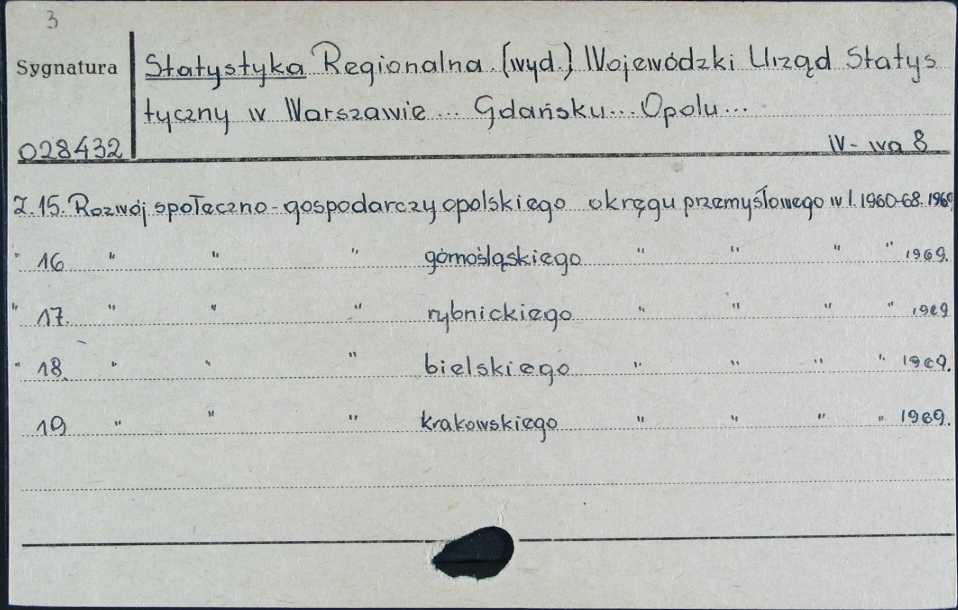 3
Sygnatura
Statystyka Regionalna. [wyd.] Wojewódzki Urząd Statys
tyczny w Warszawie ... Gdańsku... Opolu...
028432
IV- wa 8
Z.15. Rozwój społeczno-gospodarczy opolskiego okręgu przemysłowego w l. 1960-68. 1969
" 16 " " " górnośląskiego " " " " 1969.
" 17. " " " rybnickiego " " " " 1969
" 18. " " " bielskiego " " " " 1969.
19 " " " krakowskiego " " " " 1969.